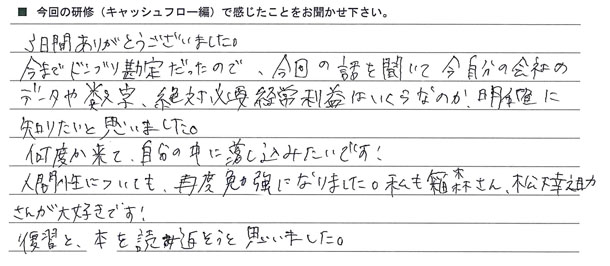 ■ 今回の研修(キャッシュフロー編)で感じたことをお聞かせ下さい。
3日間ありがとうございました。
今までドンブリ勘定だったので、今回の話を聞いて今自分の会社の
データや数字、絶対必要経常利益はいくらなのか、明確に
知りたいと思いました。
何度か来て、自分の中に落し込みたいです!
人間性についても、再度勉強になりました。私も箱森さん、松下幸之助
さんが大好きです!
復習と、本を読み返そうと思いました。